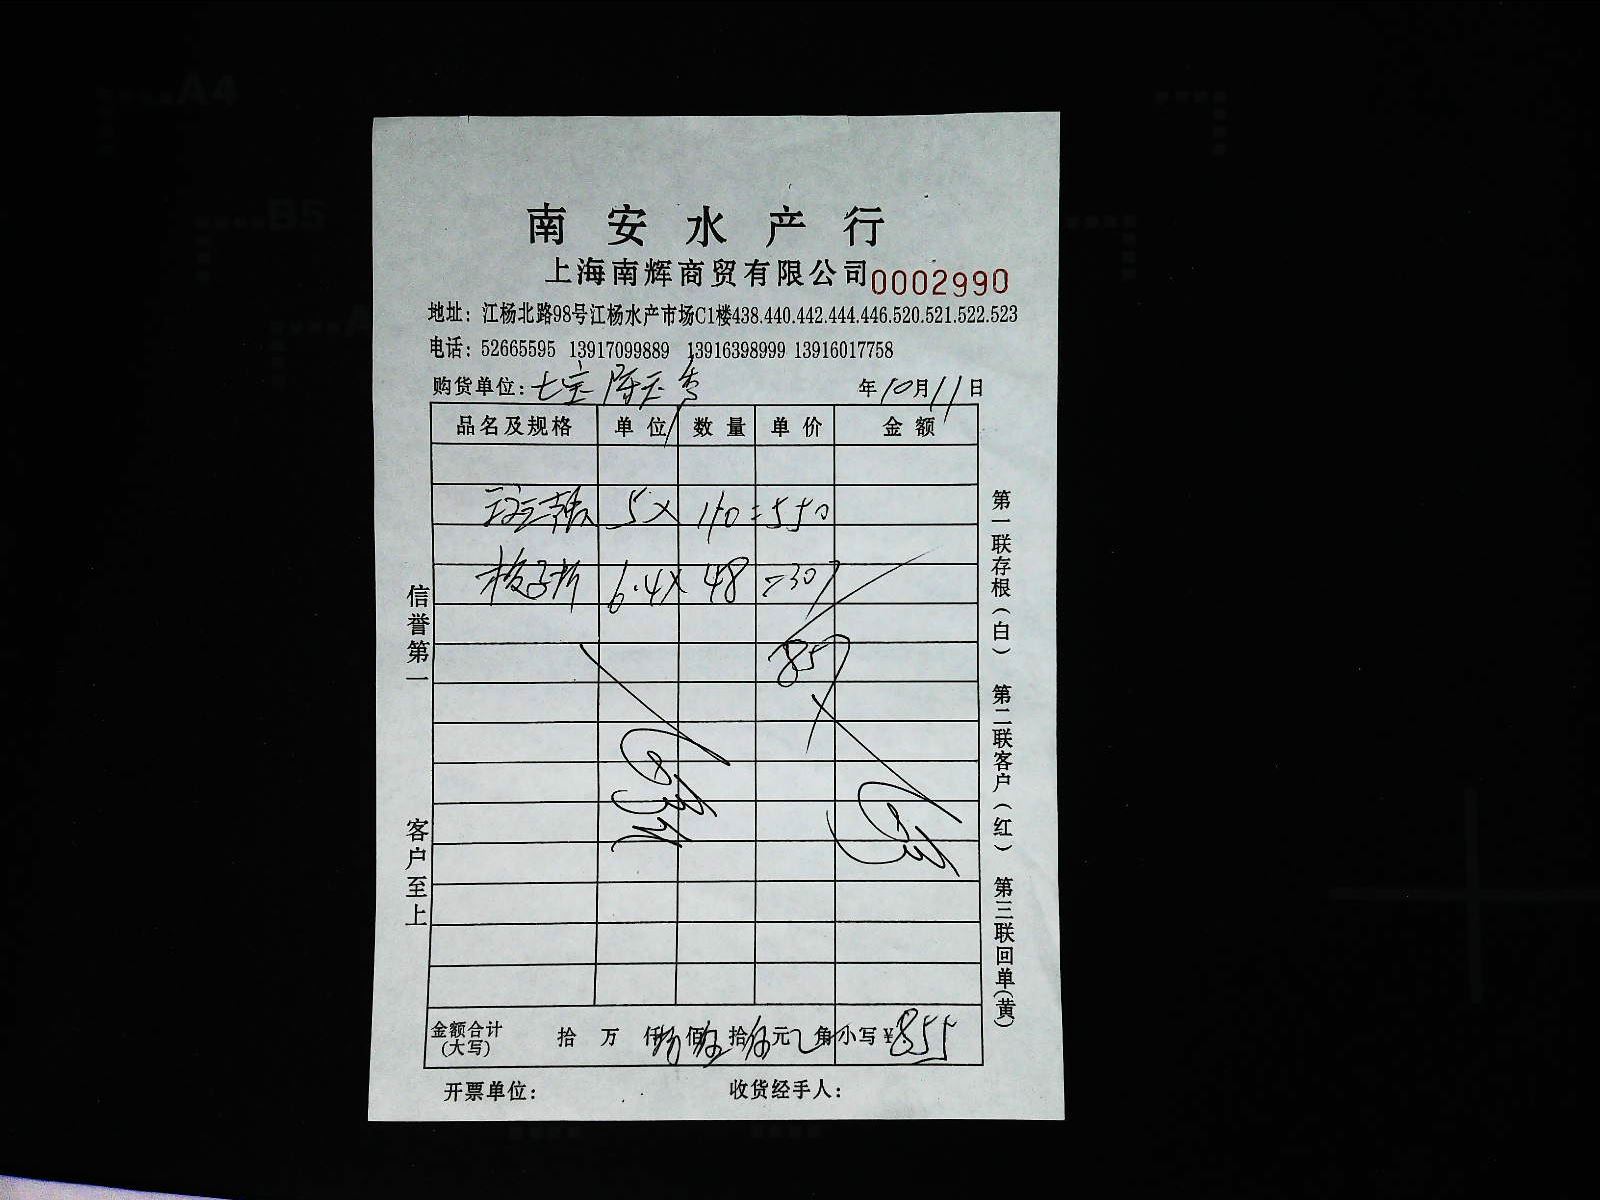 南安水产行
上海南辉商贸有限公司 0002990
地址：江杨北路98号江杨水产市场C1楼438.440.442.444.446.520.521.522.523
电话：52665595 13917099889 13916398999 13916017758
购货单位：七宝 陈玉秀 年10月11日
品名及规格 单位 数量 单价 金额
5× 110=550
6.4× 48=307
857
金额合计(大写) 拾 万 仟 佰 拾 元 角 小写¥855
开票单位： 收货经手人：
信誉第一 客户至上
第一联存根(白) 第二联客户(红) 第三联回单(黄)
A4
B5